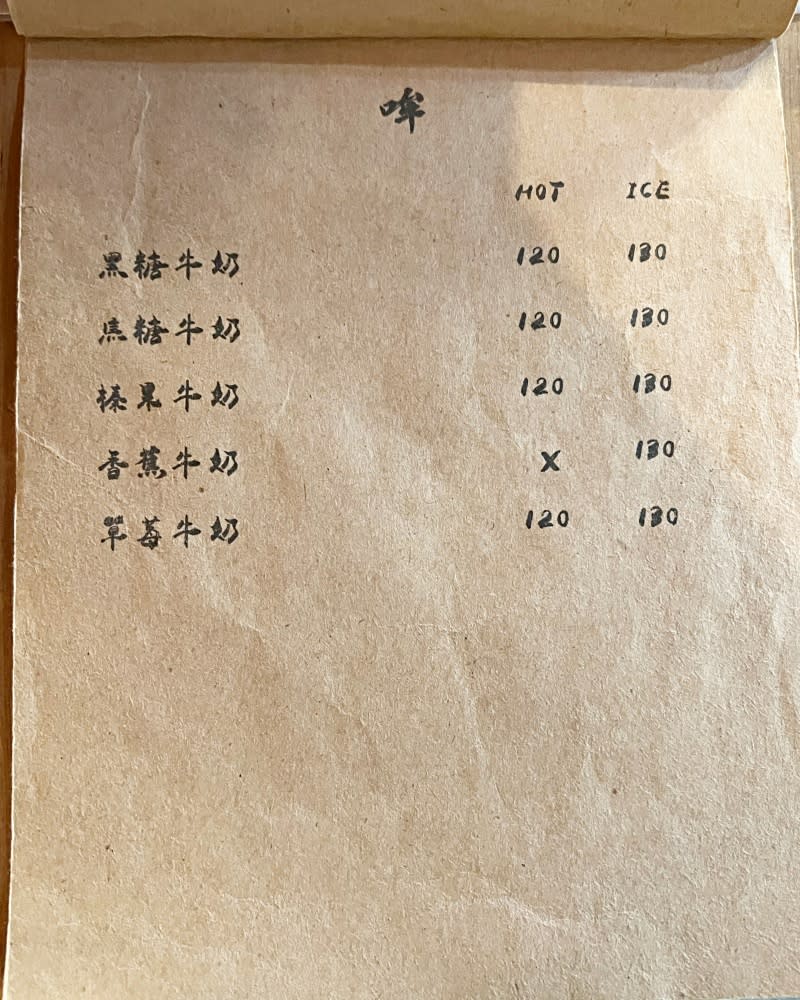 哞
HOT ICE
黑糖牛奶 120 130
焦糖牛奶 120 130
榛果牛奶 120 130
香蕉牛奶 X 130
草莓牛奶 120 130